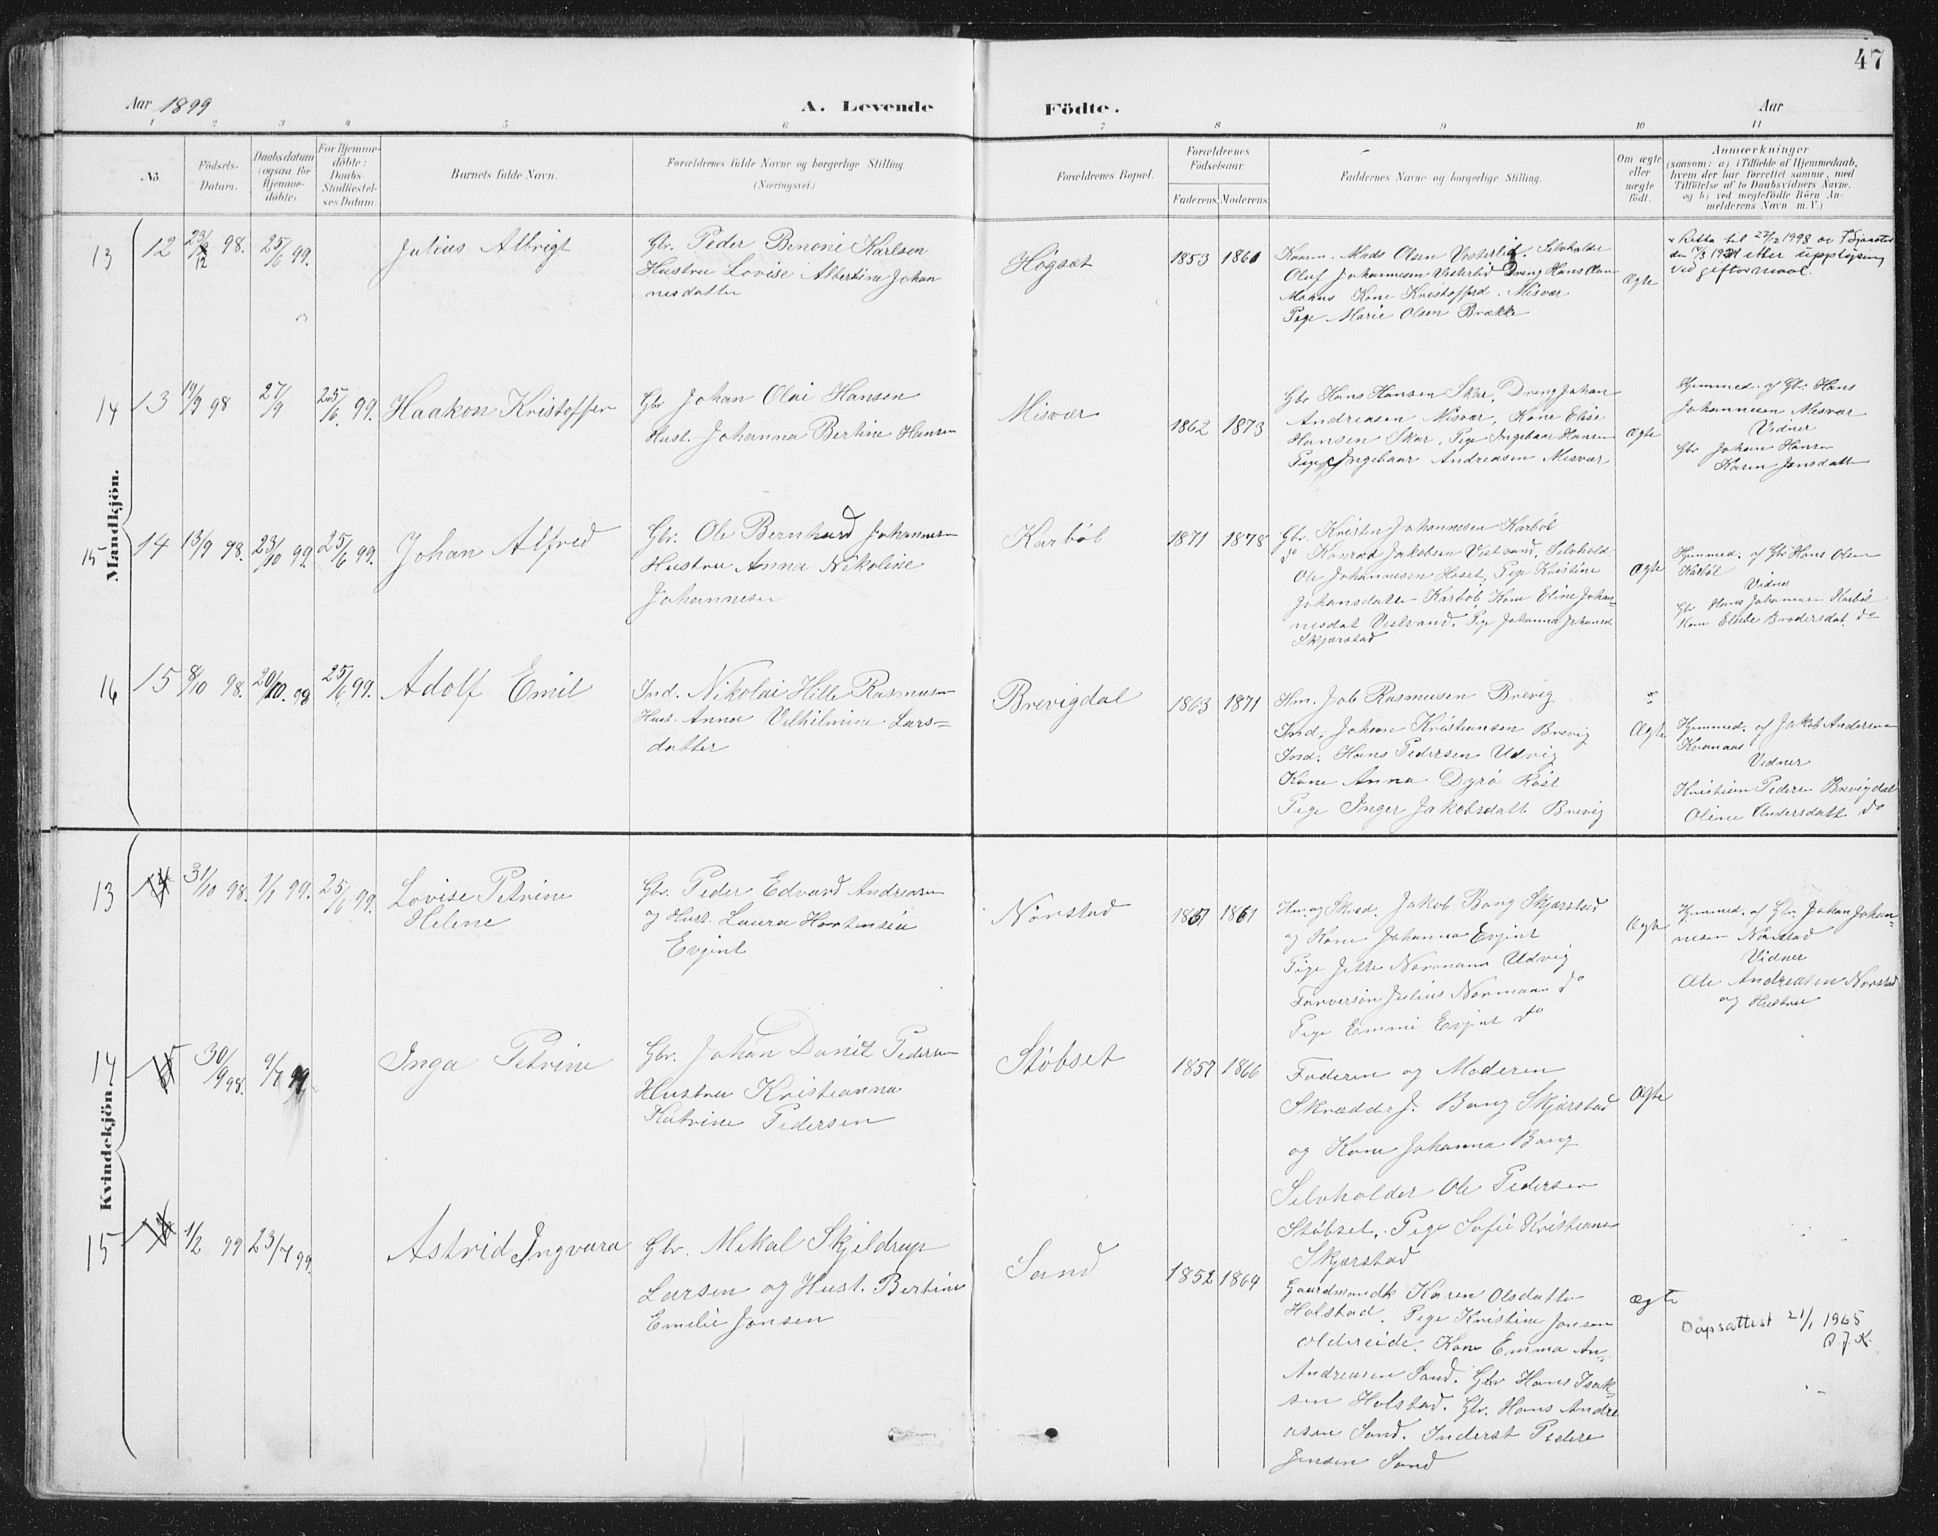 47
Aar 1899
A. Levende Födte.
Aar
1 2 3 4 5 6 7 8 9 10 11
No.
Födsels-
Datum.
Daabsdatum
(ogsaa for
Hjemme-
döbte).
For Hjemme-
döbte:
Daabs-
Stadfæstel-
ses Datum.
Barnets fulde Navn.
Forældrenes fulde Navne og borgerlige Stilling.
(Næringsvei.)
Forældrenes Bopæl.
Forældrenes
Födselsaar.
Faderens. Moderens.
Faddernes Navne og borgerlige Stilling.
Om ægte
eller
uægte
födt.
Anmærkninger
(saasom: a) i Tilfælde af Hjemmedaab,
hvem der har forrettet samme, med
Tilföielse af to Daabsvidners Navne,
og b) ved uægtefödte Börn An-
melderens Navn m. V.)
Mandkjön.
13 12 23/12 98. 25/6 99.
Julius Albrigt
Gbr. Peder Benoni Karlsen
Hustru Lovise Albertine Johan
nesdatter
Högset
1853 1861
Kaarm. Mads Olsen Vesterli, Selvholder
Oluf Johannesen Vesterlid Dreng Hans Olsen
Mohus Kone Kristofferd. Misvær
Pige Marie Olsen Brække
Ægte
Retta til 23/12 1998 av
den 17/3 1921 etter upplysning
ved giftormaal.
14 13 19/9 98 27/9 25/6 99.
Haakon Kristoffer
Gbr Johan Olai Hansen
Hust. Johanna Bertine Hansen
Misvær
1862 1873
Gbr Hans Hansen Skar, Dreng Johan
Andreasen Misvær, Kone Elise
Hansen Skar, Pige Ingebaar Hansen
Pige Ingebaar Andreasen Misvær
Ægte
Hjemmed. af Gbr. Hans
Johannesen Misvær
Vidner
Gbr Johan Hansen
Karen Jensdatter
15 14 13/9 98. 23/10 99. 25/6 99.
Johan Alfred
Gbr. Ole Bernhard Johannesen
Hustru Anna Nikoline
Johannesen
Karbøl
1871 1878
Gbr. Kristen Johannesen Karbøl
do Konrad Jakobsen Vestvand, Selvhold.
Ole Johannesen Hoset, Pige Kristine
Johansdatter Karbøl, Kone Eline Johan-
nesdat Vestvand, Pige Johanna Johansd.
Skjærstad
Ægte
Hjemmed. af Gbr. Hans Olsen
Karbøl
Vidner
Gbr Hans Johannesen Karbøl
Kone Elsebe Brodersdat. do
16 15 8/10 98. 20/10 98 25/6 99.
Adolf Emil
Ind. Nikolai Hilb. Rasmusen
Hust. Anna Vilhilmine Lars-
datter
Brevigdal
1863 1871
Hm. Job Rasmusen Brevig
Ind. Johan Kristiansen Brevig
Ind. Hans Pedersen Udvig
Kone Anna Dyrö Köst
Pige Inger Jakobsdatt Brevig
Ægte
Hjemmed. af Jakob Andersen
Kvanaas
Vidner
Kristian Pedersen Brevigdal
Oline Andersdatt do
Kvindekjön.
13 31/10 98. 1/1 99. 25/6 99.
Lovise Petrine
Helene
Gbr. Peder Edvard Andreasen
og Hust. Laura Hortensia
Evjent
Nörstad
1867 1861
Hm. og Skræd. Jakob Bang Skjærstad
og Kone Johanna Evjent
Pige Jette Normann Udvig
Farversön Julius Normann do
Pige Emmi Evjent do
Ægte
Hjemmed. af Gbr. Johan Johan-
nesen Nörstad
Vidner
Ole Andreasen Nörstad
og Hustru
14 30/9 98. 9/7 99.
Inga Petrine
Gbr. Johan Danil Pedersen
Hustru Kristianna
Katrine Pedersen
Støbset
1857 1866
Faderen og Moderen
Skrædder J. Bang Skjærstad
og Kone Johanna Bang
Selvholder Ole Pedersen
Støbset, Pige Sofie Kristians
Skjærstad
Ægte
15 1/2 99 23/7 99.
Astrid Ingvara
Gbr. Mikal Skjeldrup
Larsen og Hust. Bertine
Emilie Jonsen
Sand
1852 1864
Gaardmandk Karen Olsdatter
Holstad. Pige Kristine Jonsen
Oldereide. Kone Emma An-
Andreasen Sand. Gbr Hans Isak-
sen Holstad. Gbr. Hans Andre
asen Sand. Inderst Peder
Jensen Sand
Ægte
Dåpsattest 21/1 1965